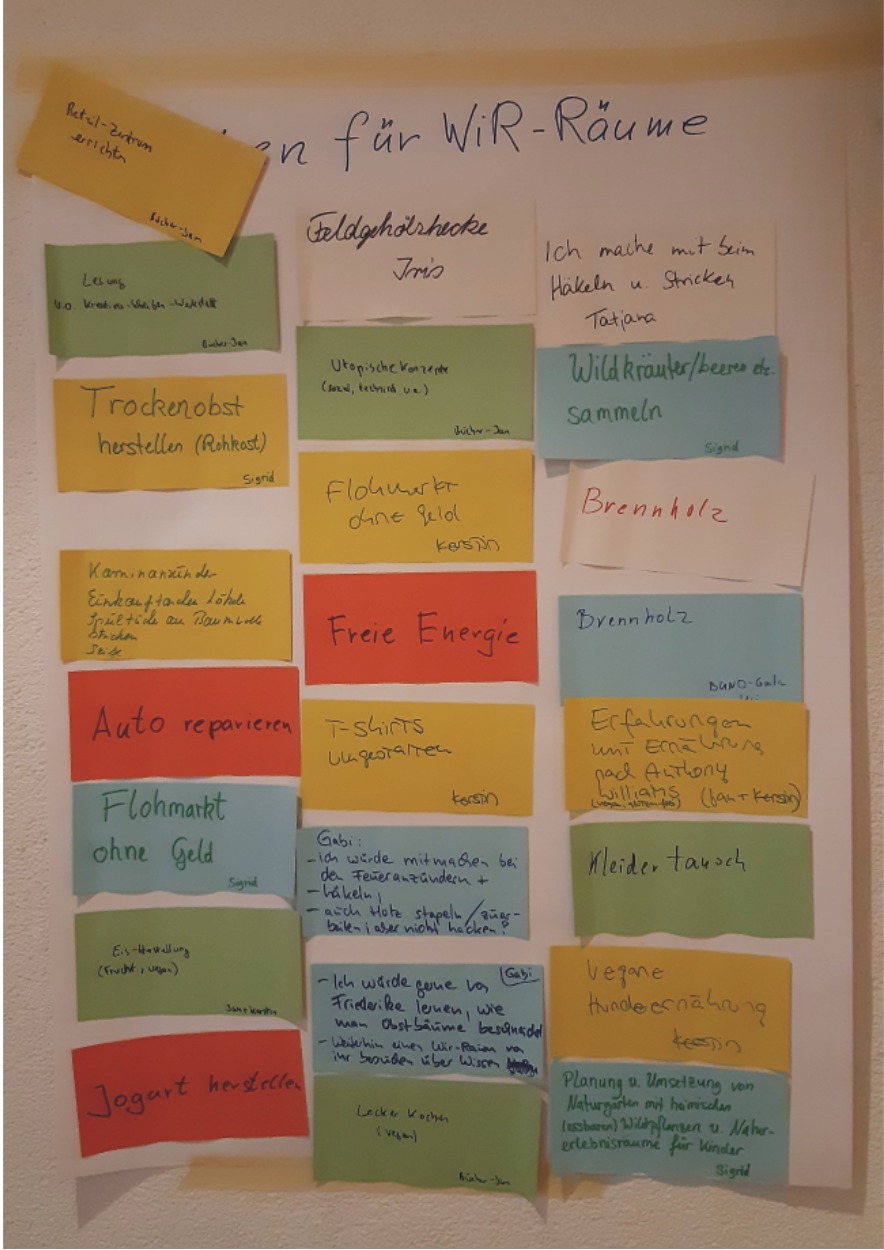 en für WiR-Räume
Retail-Zentrum
errichten
Bücher-Jan
Lesung
u.a. Kreativ- -Werkstatt
Bücher-Jan
Trockenobst
herstellen (Rohkost)
Sigrid
Kaminanzünder
Einkaufstaschen
Spültücher aus Baumwolle
stricken
Seife
Auto reparieren
Flohmarkt
ohne Geld
Sigrid
Eis-Herstellung
(Frucht, vegan)
Jan + Kerstin
Jogart herstellen
Feldgehölzhecke
Iris
Utopische Konzepte
(sozial, technisch u.a.)
Bücher-Jan
Flohmarkt
ohne Geld
Kerstin
Freie Energie
T-Shirts
umgestalten
Kerstin
Gabi:
- Ich würde mitmachen bei
den Feueranzündern +
- häkeln,
- auch Holz stapeln /
aber nicht hacken!
- Ich würde gerne von Gabi
Friederike lernen, wie
man Obstbäume beschneidet
- Weiterhin einen Wir-Raum von
ihr besuchen über Wissen
Lecker Kochen
(vegan)
Bücher-Jan
Ich mache mit beim
Häkeln u. Stricken
Tatjana
Wildkräuter/beeren etc.
sammeln
Sigrid
Brennholz
Brennholz
BUND-
Erfahrungen
mit Ernährung
nach Anthony
Williams (Jan + Kerstin)
Kleidertausch
Vegane
Hundeernährung
Kerstin
Planung u. Umsetzung von
Naturgärten mit heimischen
(essbaren) Wildpflanzen u. Natur-
erlebnisräume für Kinder
Sigrid